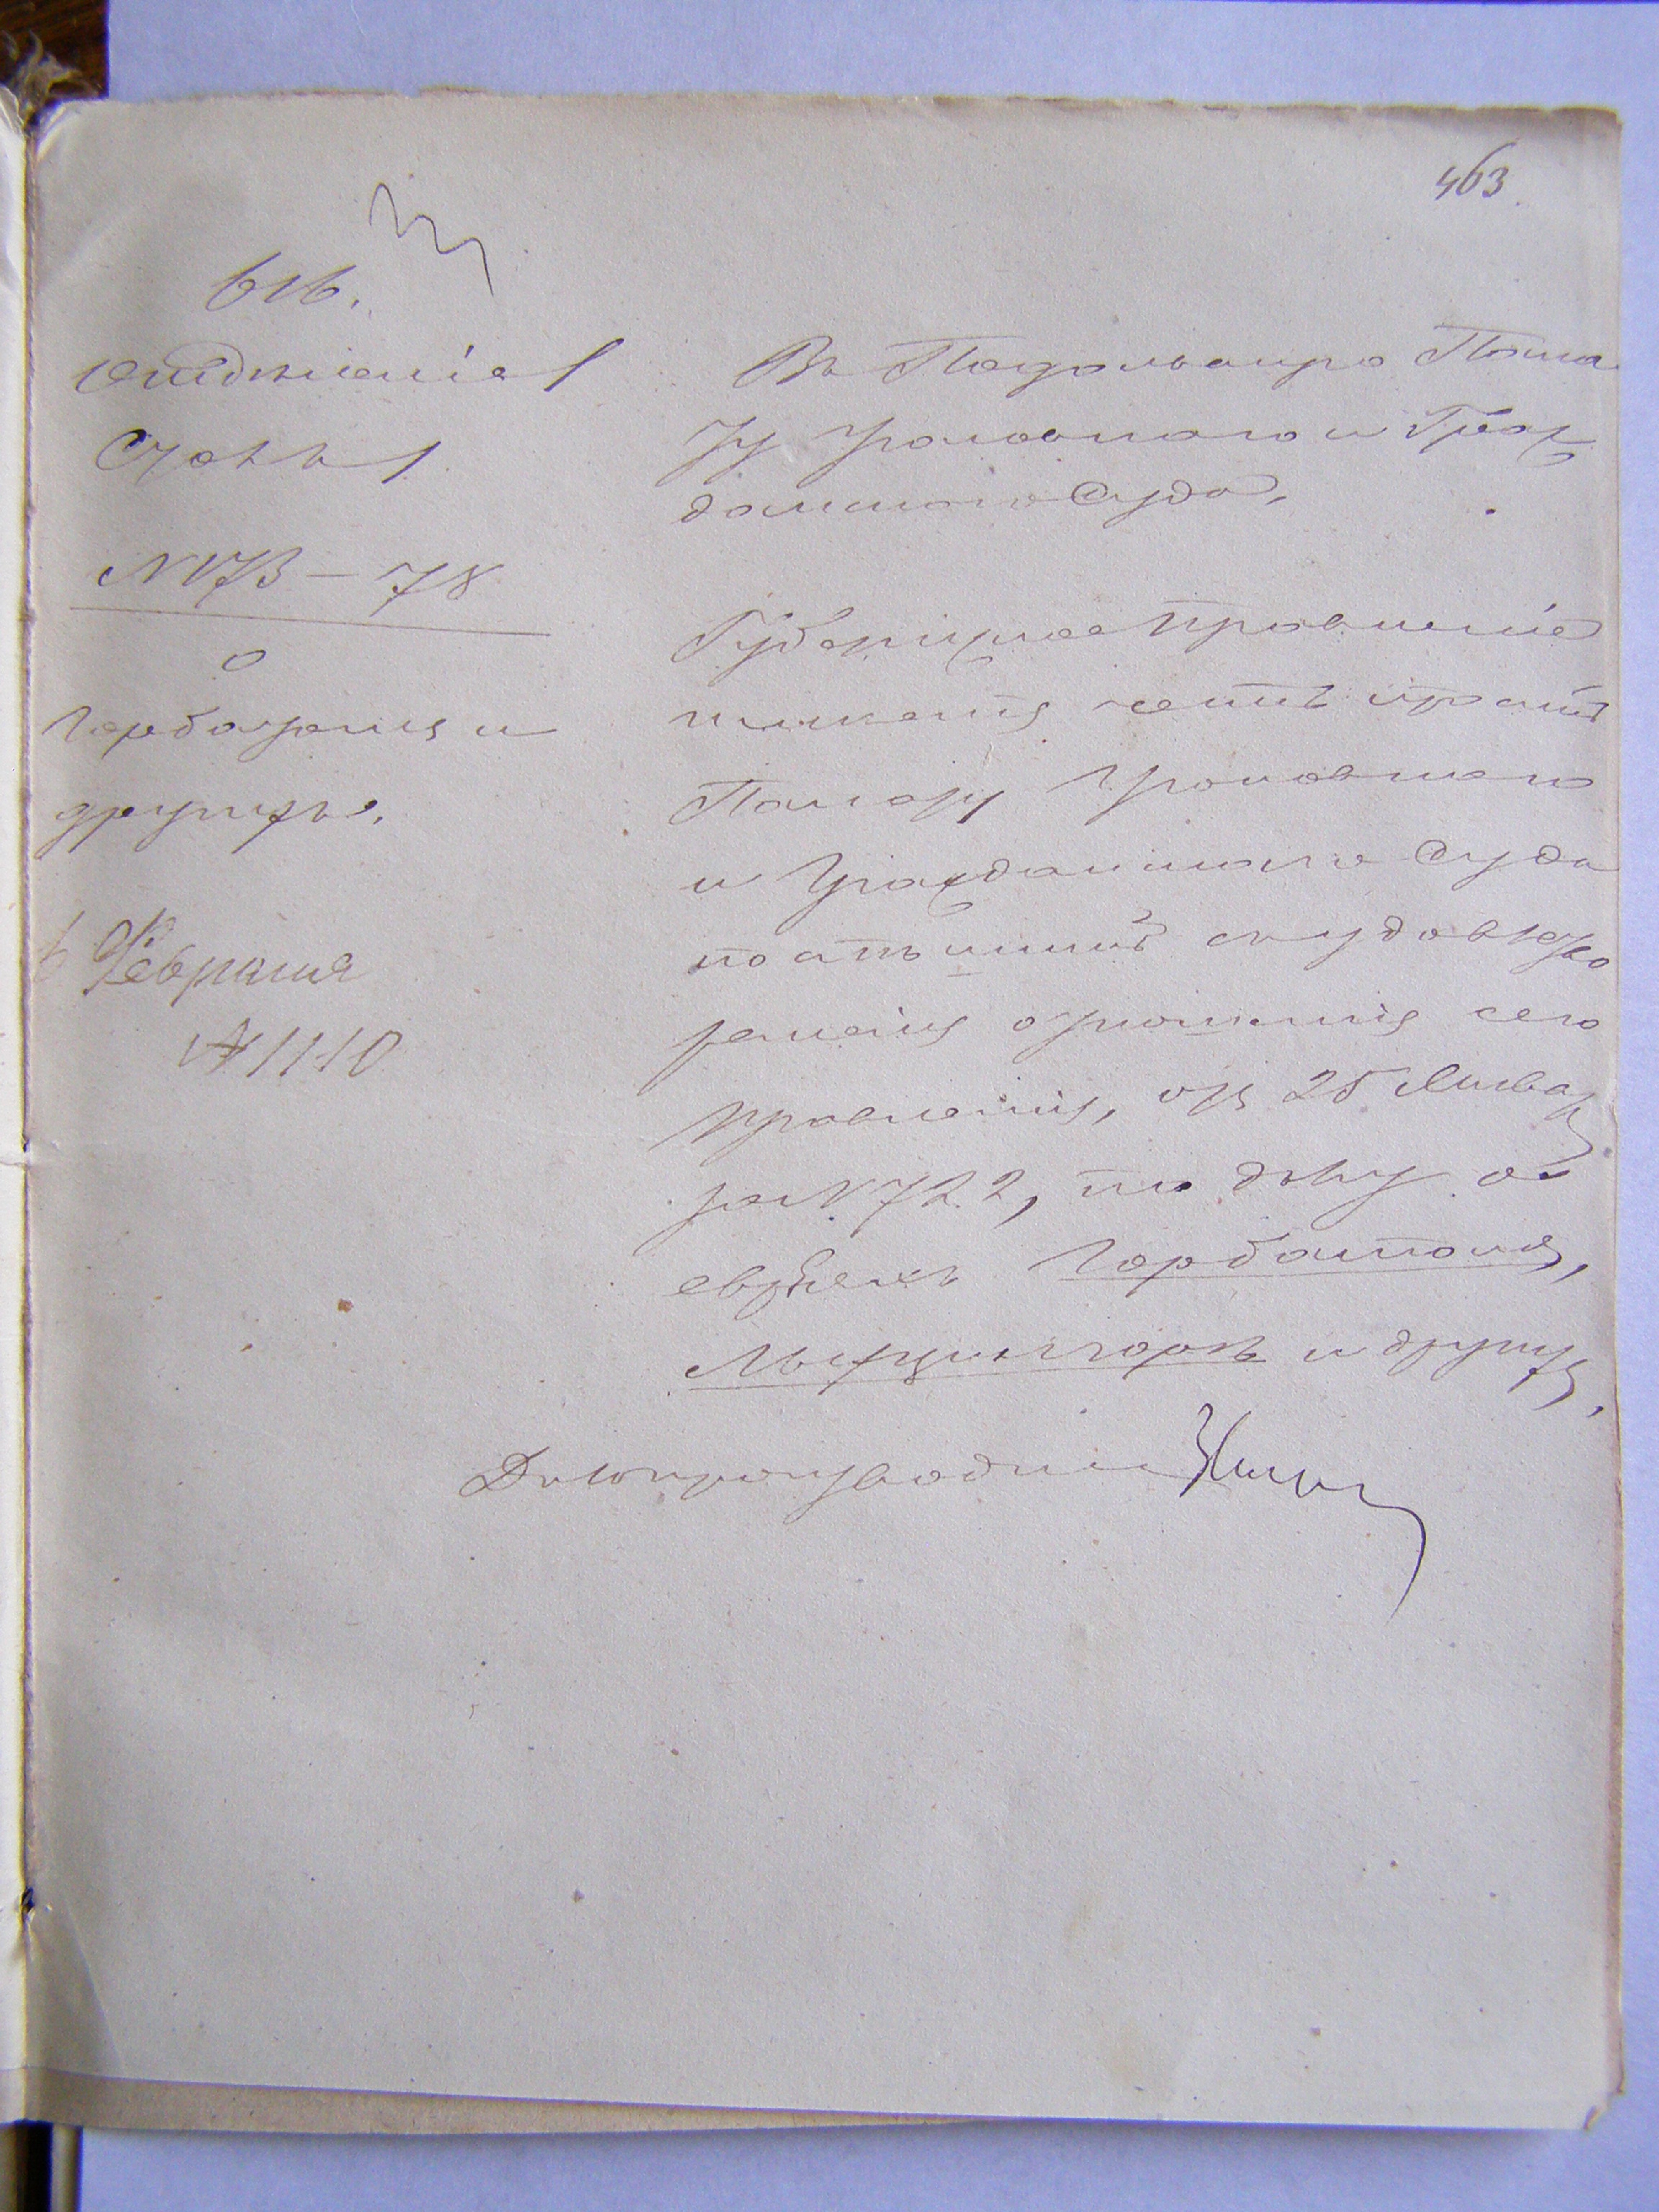 463.
отдѣленіе 1
Столъ 1
N 173 – 78
о
Горбатомъ и
другихъ.
6 Февраля
№ 1110
Въ Подольскую Пала
ту Уголовнаго и Граж
данскаго Суда.
Губернское Правленіе
имѣетъ честь просить
Палату Уголовнаго
и Гражданскаго Суда
поспѣшить удовлетво
реніемъ отношенія сего
Правленія, отъ 25 Января
за N 722, по дѣлу о
евреяхъ Горбатомъ,
и другихъ.
Дѣлопроизводитель